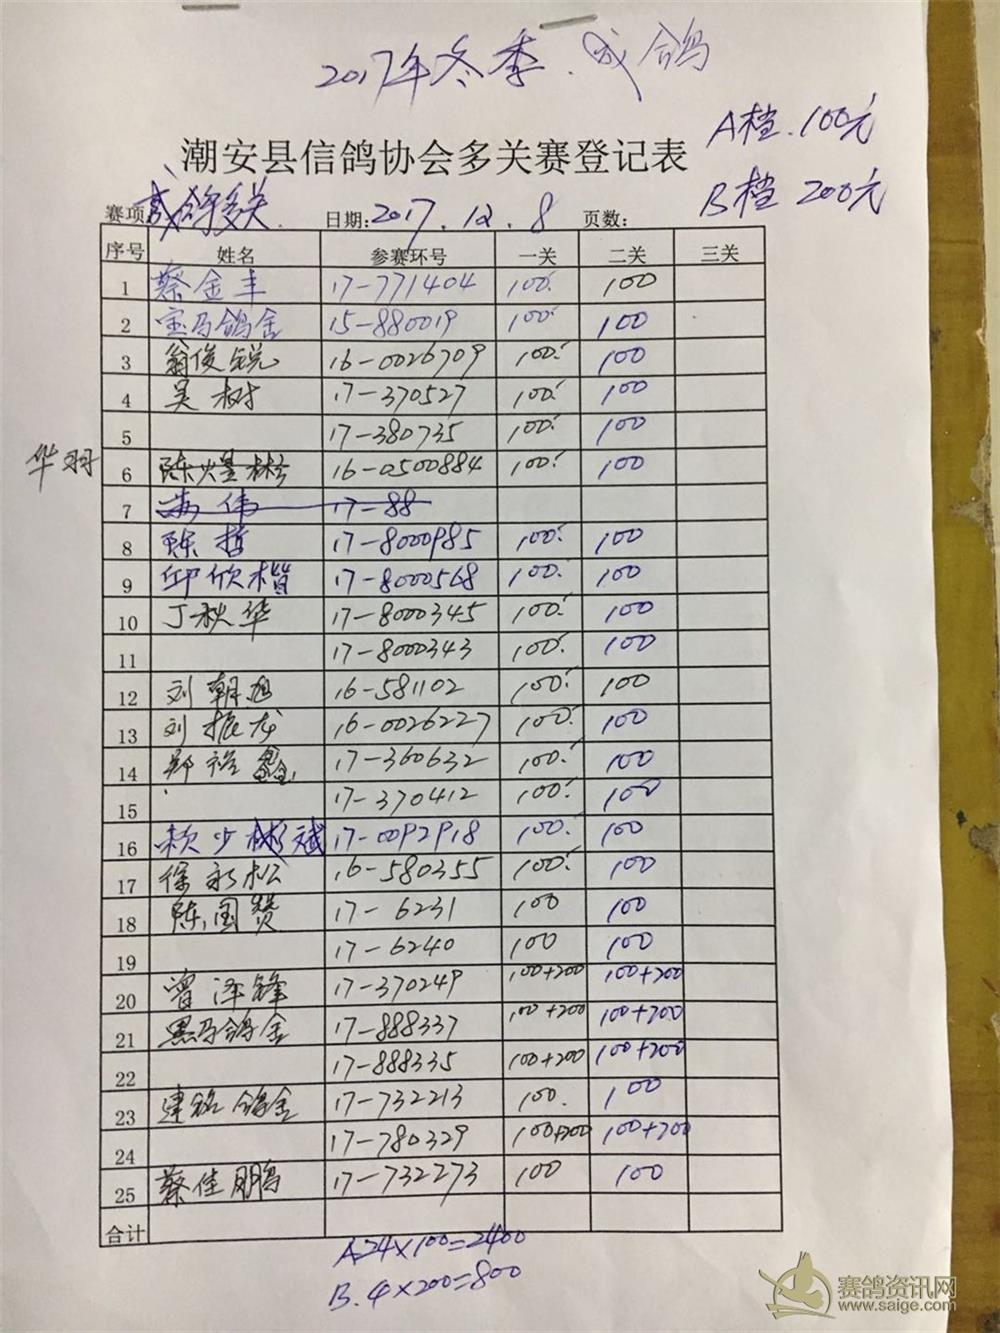 2017年冬季.成鸽
潮安县信鸽协会多关赛登记表
A档.100元
B档200元
赛项: 成鸽多关. 日期: 2017.12.8 页数:
序号 姓名 参赛环号 一关 二关 三关
1 蔡金丰 17-771404 100. 100
2 宝马鸽舍 15-880019 100. 100
3 翁俊锐 16-0026709 100. 100
4 吴树 17-370527 100. 100
5 17-380735 100. 100
华羽
6 陈煌彬 16-0500884 100. 100
7 17-88
8 陈哲 17-8000985 100. 100
9 邱欣楷 17-8000568 100. 100
10 丁秋华 17-8000345 100. 100
11 17-8000343 100. 100
12 刘朝旭 16-581102 100. 100
13 刘振龙 16-0026227 100. 100
14 郑裕鑫 17-360632 100. 100
15 17-370412 100. 100
16 赖少彬斌 17-0092918 100. 100
17 徐永松 16-580355 100. 100
18 陈国赞 17-6231 100 100
19 17-6240 100 100
20 曾泽锋 17-370249 100+200 100+200
21 黑马鸽舍 17-888337 100+200 100+200
22 17-888335 100+200 100+200
23 建铭鸽舍 17-732213 100. 100
24 17-780329 100+200 100+200
25 蔡佳鹏 17-732273 100 100
合计
A.24×100=2400
B.4×200=800
赛鸽资讯网
www.saige.com